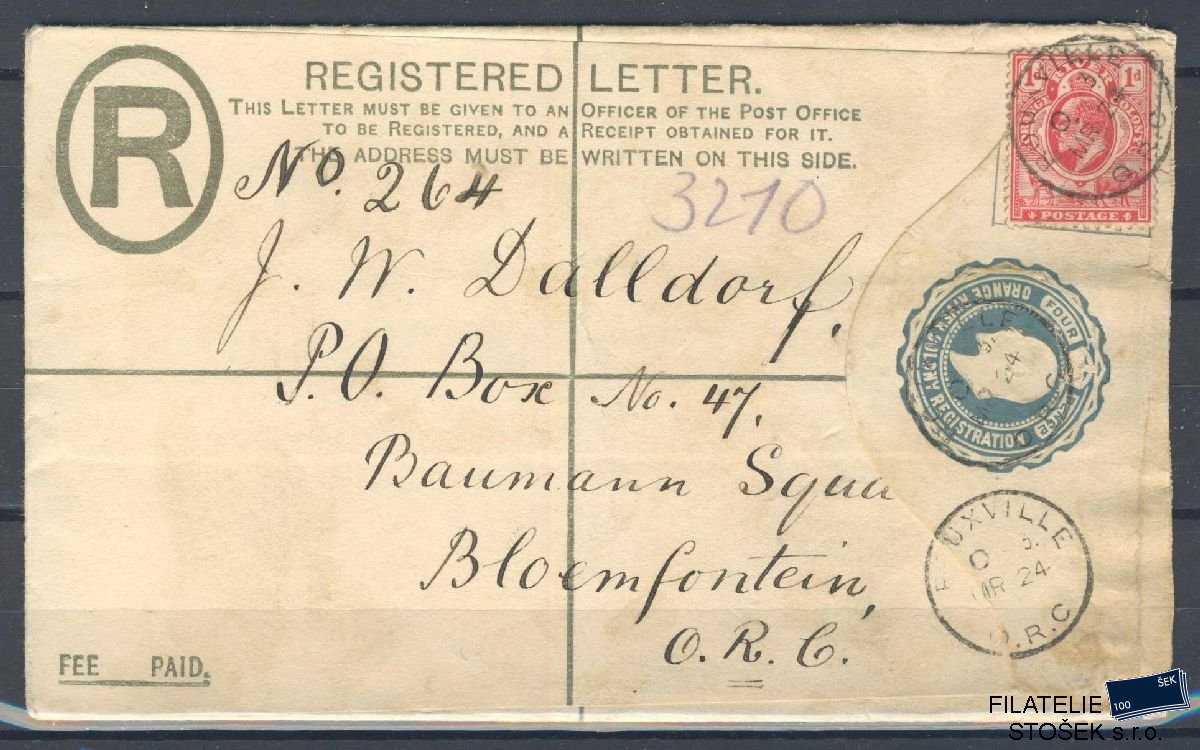 R
REGISTERED LETTER.
THIS LETTER MUST BE GIVEN TO AN OFFICER OF THE POST OFFICE
TO BE REGISTERED, AND A RECEIPT OBTAINED FOR IT.
THE ADDRESS MUST BE WRITTEN ON THIS SIDE.
No. 264
3210
J. W. Dalldorf,
P.O. Box No. 47,
Baumann Squa
Bloemfontein,
O. R. C.
FEE PAID.
1d RIVER 1d
POSTAGE
ORANGE RIVER COLONY
FOUR PENCE
REGISTRATION
ROUXVILLE
MR 24
O.R.C
FILATELIE
STOŠEK s.r.o.
100 ŠEK